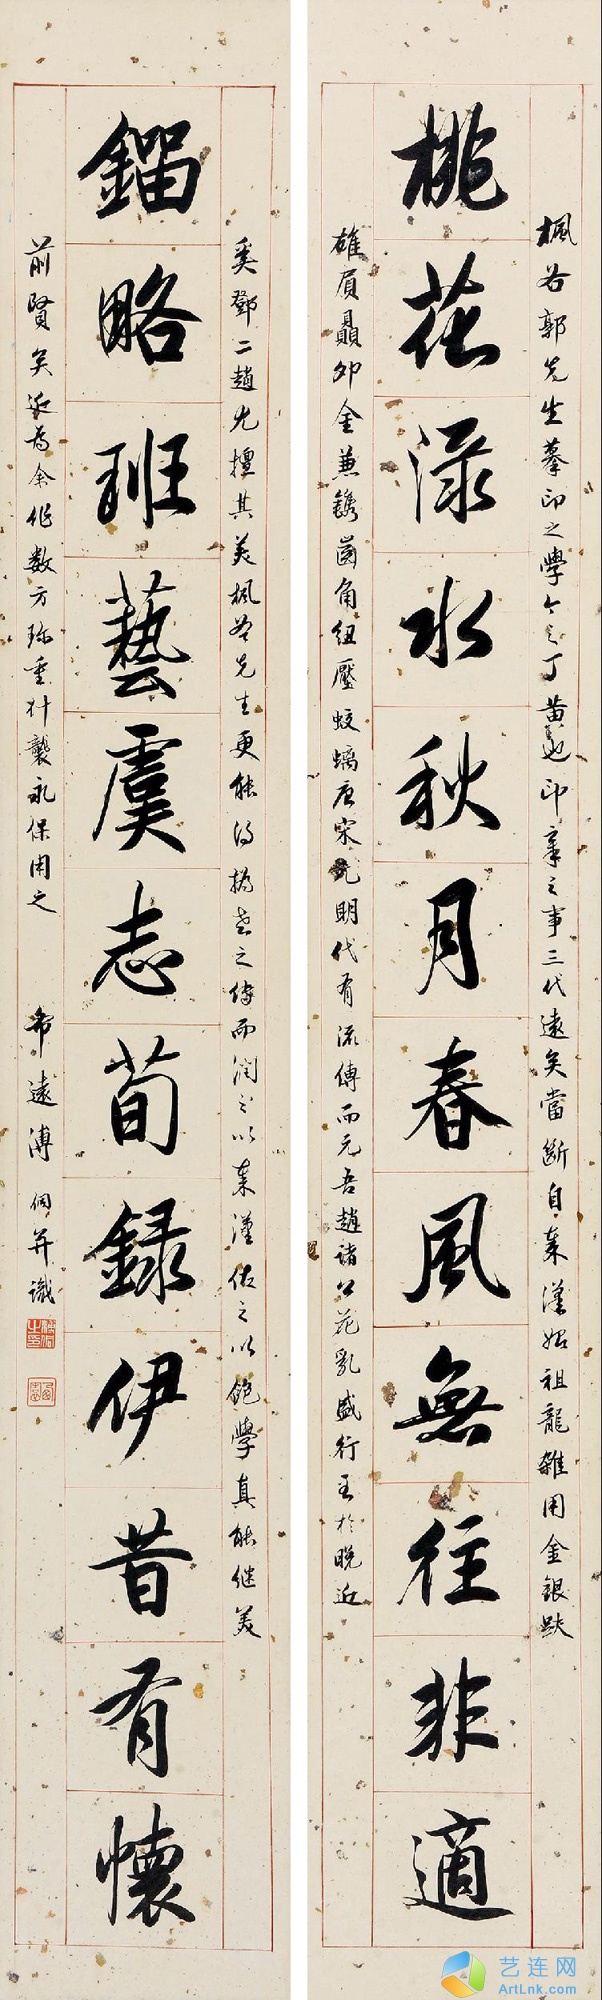 桃花渌水秋月春風無往非適
楓谷郭先生摹印之學今之丁黃也印章之事三代遠矣當斷自秦漢始祖龍雜用金銀
雄屓贔卯金兼鐫齒角紐壓蚊螭唐宋元明代有流傳而元吾趙諸公花乳盛行至於晚近
鎦略班藝虞志荀錄伊昔有懷
奚鄧二趙尤擅其美楓谷先生更能得之傳而潤之以秦漢佐之以飽學真能繼美
前賢矣近為余作數方珍重什襲永保用之
希遠溥伒並識
艺连网
ArtLnk.com